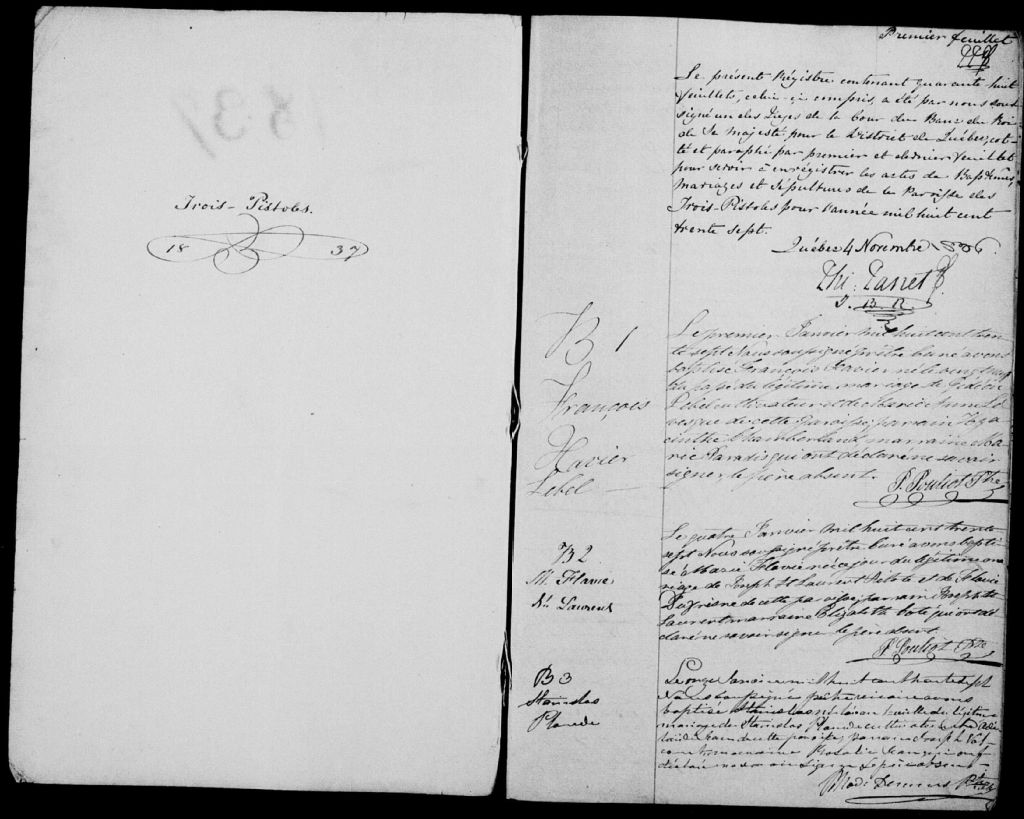 1837
Trois-Pistoles.
18 37
Premier feuillet
Le présent Régistre contenant quarante huit
feuillets, celui-ci compris, a été par nous sous-
signé un des Juges de la Cour du Banc du Roi
de Sa Majesté pour le District de Québec, cot-
té et paraphé par premier et dernier feuillet
pour servir à enrégistrer les actes de Baptêmes,
Mariages et Sépultures de la Paroisse des
Trois-Pistoles pour l'année mil huit cent
trente sept.
Québec 4 Novembre 1836.
J. B. R.
B 1
François
Xavier
Lebel
Le premier Janvier mil huit cent tren
te sept Nous soussigné prêtre curé avons
baptisé François Xavier né le
du légitime mariage de
Lebel cultivateur et de Marie Anne Lé
vesque de cette Paroisse; parrain Hya
cinthe Chamberland marraine Ma
rie Paradis qui ont déclaré ne savoir
signer, le père absent.
P. Pouliot Ptre
B 2
M. Flavie
St. Laurent
Le quatre Janvier mil huit cent trente
sept Nous soussigné prêtre curé avons bapti
sé Marie Flavie née ce jour du légitime ma
riage de Joseph St Laurent Pilote et de Flavie
de cette paroisse, parrain Joseph St
Laurent marraine Elizabeth Coté qui ont dé
claré ne savoir signer le père absent.
P. Pouliot Ptre
B 3
Stanislas
Plourde
Le onze Janvier mil huit cent trente sept
Nous soussigné prêtre vicaire avons
baptisé Stanislas né la veille du légitime
mariage de Stanislas Plourde cultivateur et de
de cette paroisse, parrain Joseph
marraine Rosalie qui ont
déclaré ne savoir signer le père absent.